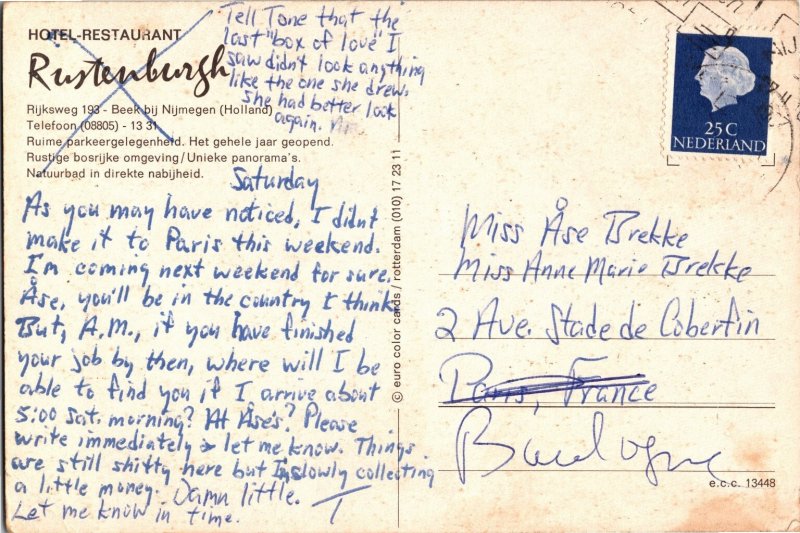 HOTEL-RESTAURANT
Rustenburgh
Rijksweg 193 - Beek bij Nijmegen (Holland)
Telefoon (08805) - 13 31
Ruime parkeergelegenheid. Het gehele jaar geopend.
Rustige bosrijke omgeving/Unieke panorama's.
Natuurbad in direkte nabijheid.
Tell Tone that the
last "box of love" I
saw didn't look anything
like the one she drew.
She had better look
again.
Saturday
As you may have noticed, I didn't
make it to Paris this weekend.
I'm coming next weekend for sure.
Åse, you'll be in the country I think.
But, A.M., if you have finished
your job by then, where will I be
able to find you if I arrive about
5:00 Sat. morning? At Åse's? Please
write immediately & let me know. Things
are still shitty here but I'm slowly collecting
a little money. Damn little.
Let me know in time.
T
© euro color cards / rotterdam (010) 17 23 11
25C
NEDERLAND
Miss Åse Brekke
Miss Anne Marie Brekke
2 Ave. Stade de Cobertin
Paris, France
Boulogne
e.c.c. 13448